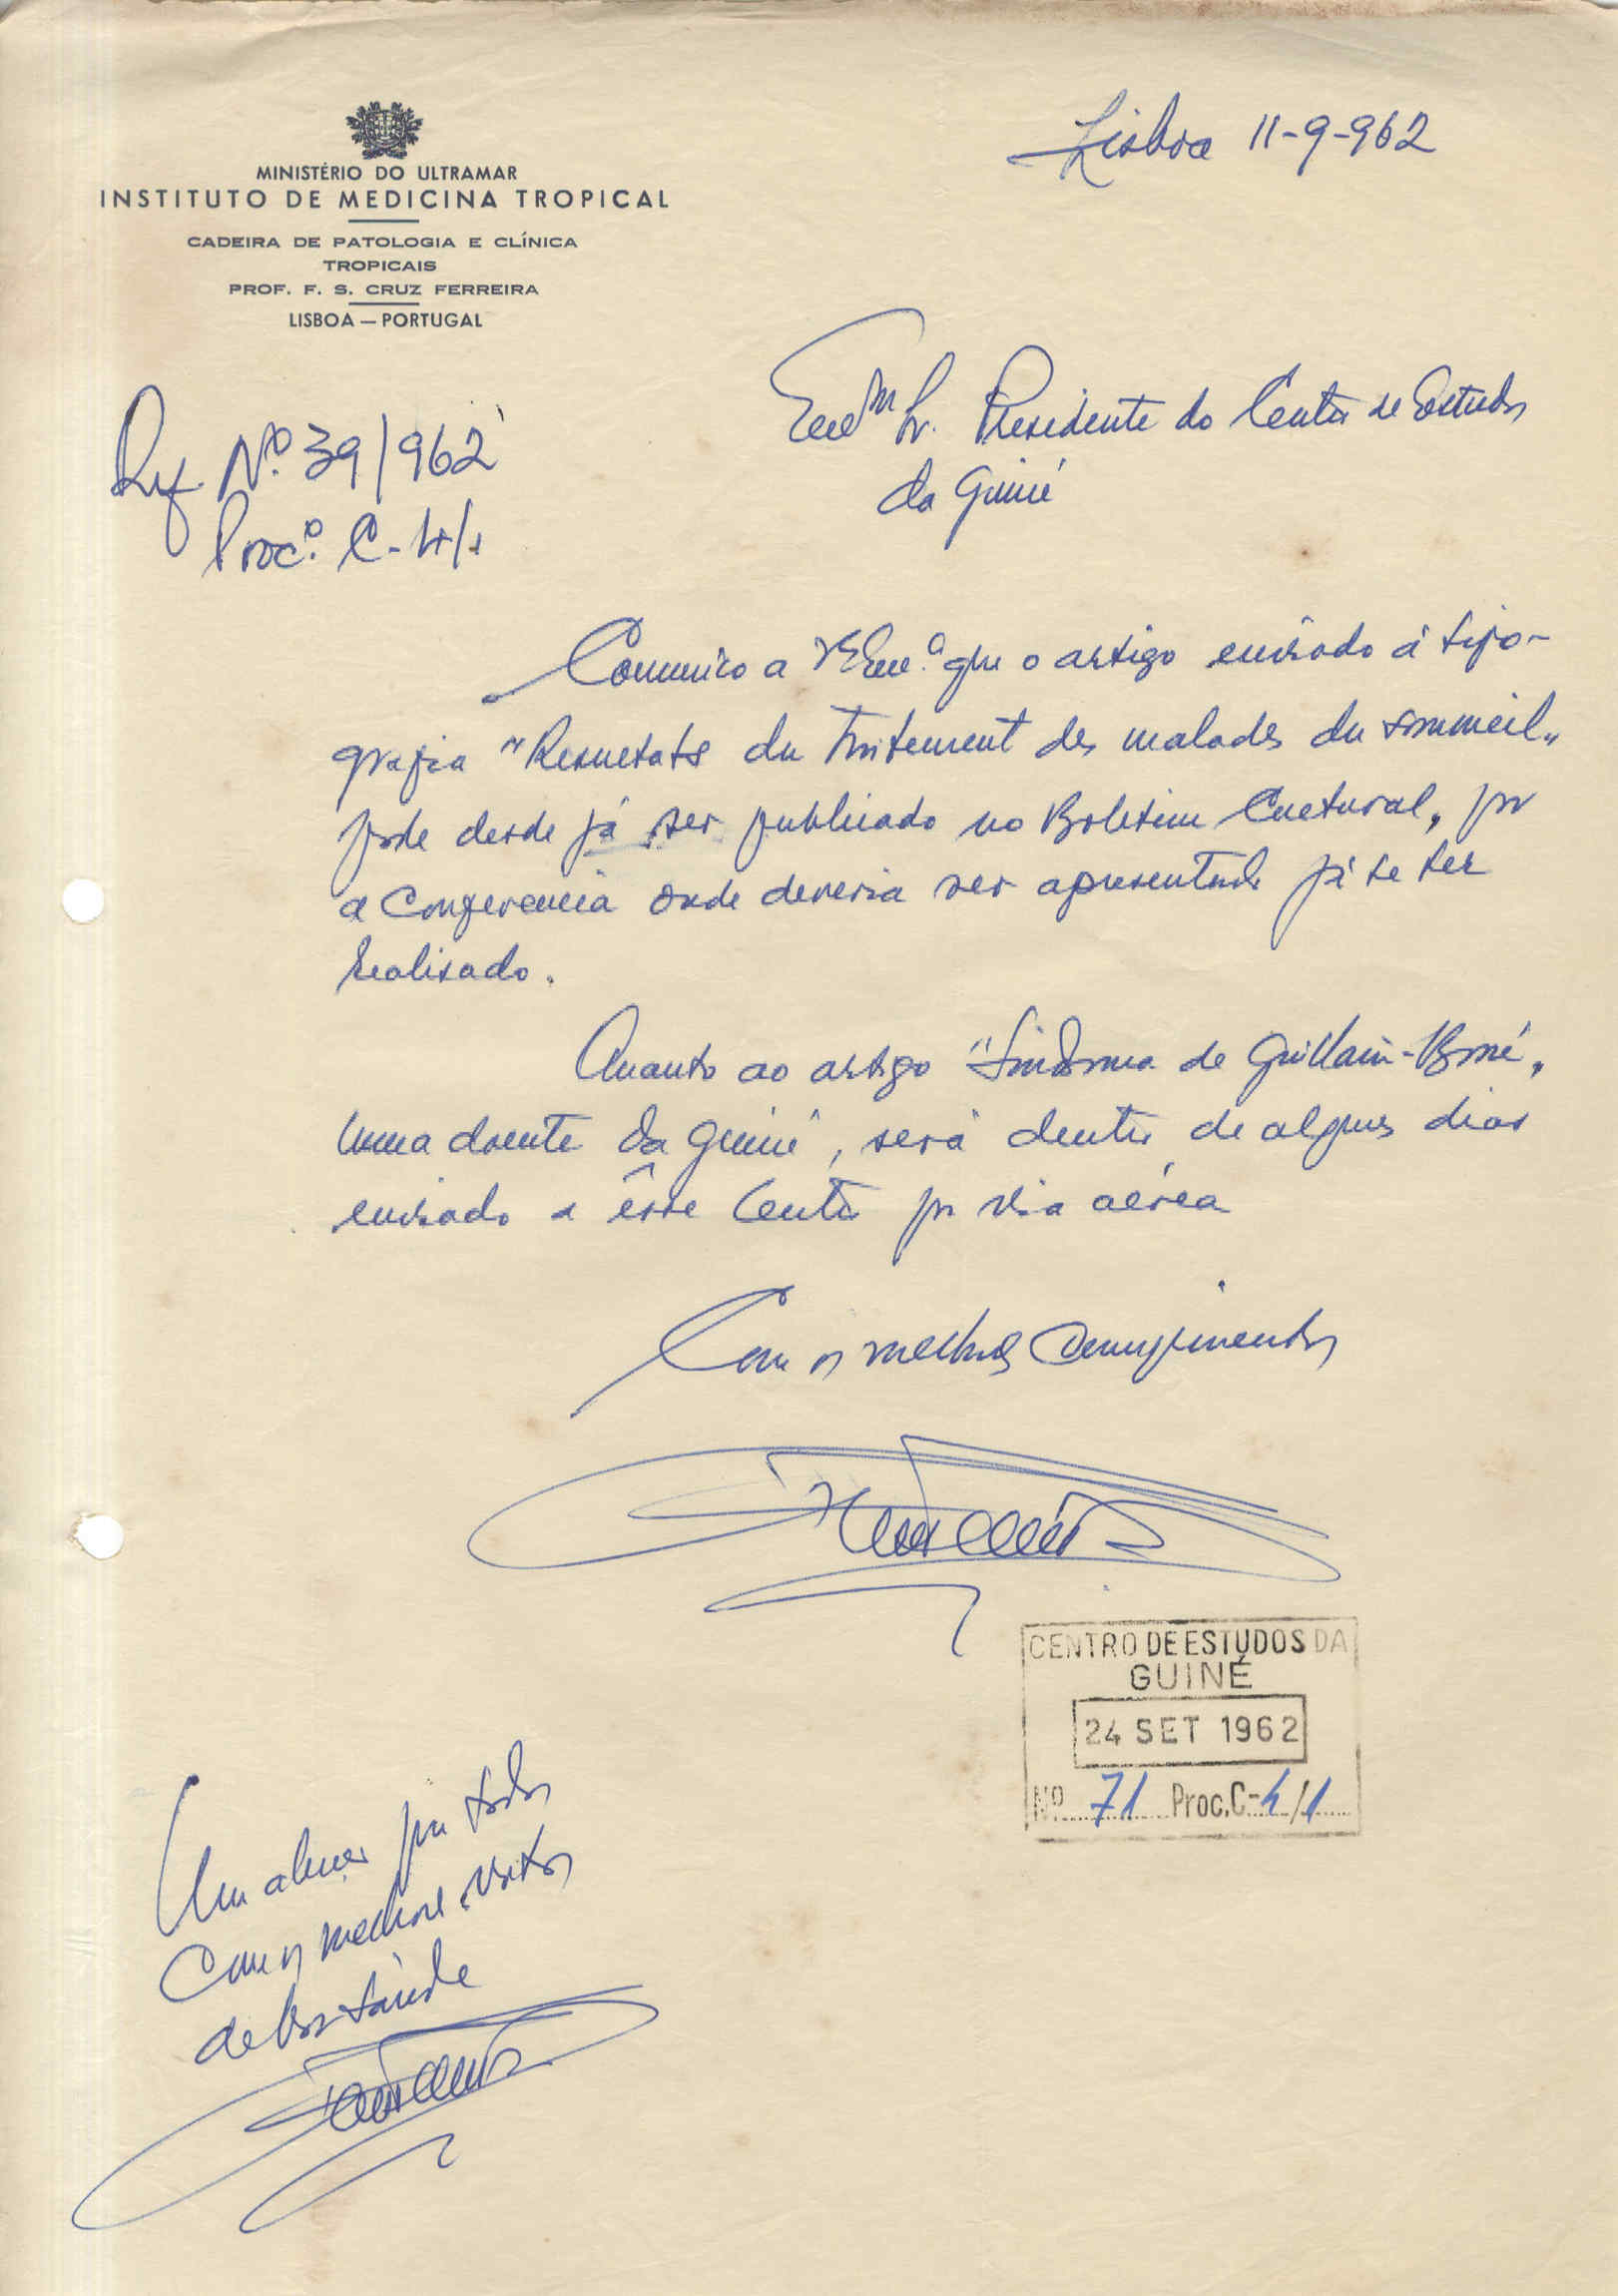 MINISTÉRIO DO ULTRAMAR
INSTITUTO DE MEDICINA TROPICAL
CADEIRA DE PATOLOGIA E CLÍNICA
TROPICAIS
PROF. F. S. CRUZ FERREIRA
LISBOA — PORTUGAL
Lisboa 11-9-962
Ref. Nº. 39/962
Proc.º C-4/1
Exmº Sr. Presidente do Centro de Estudos
da Guiné
Comunico a V. Exe.ª que o artigo enviado á tipo-
grafia "Resultats du Traitement des malades du sommeil"
pode desde já ser publicado no Boletim Cultural, por
a Conferencia onde deveria ser apresentado já se ter
realisado.
Quanto ao artigo "Sindroma de Guillain-Barré,
numa doente da Guiné", será dentro de alguns dias
enviado a êsse Centro por via aérea
Com os melhores cumprimentos
CENTRO DE ESTUDOS DA
GUINÉ
24 SET 1962
Nº 71 Proc. C-4/1
Um abraço para todos
com os melhores votos
de boa saúde